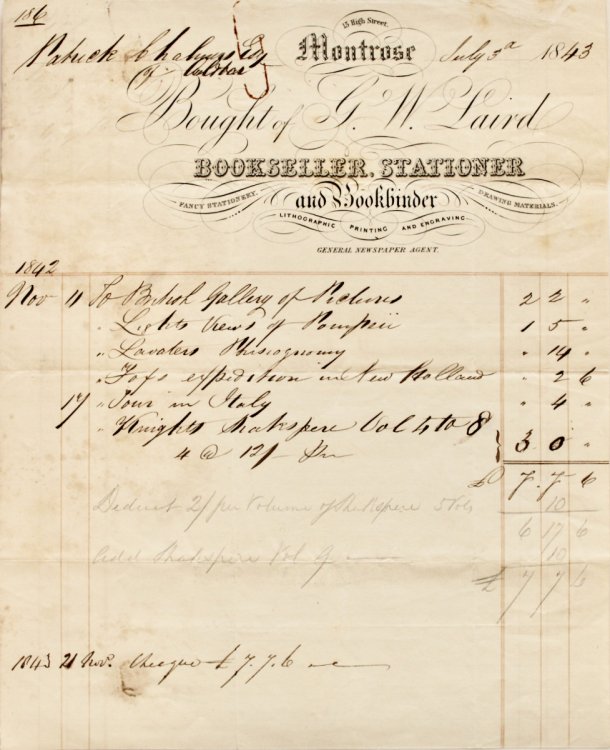 186
15 High Street.
Patrick Chalmers Esq Montrose July 3d 1843
of
Bought of G. W. Laird
BOOKSELLER, STATIONER
FANCY STATIONERY. and Bookbinder DRAWING MATERIALS.
LITHOGRAPHIC PRINTING AND ENGRAVING
GENERAL NEWSPAPER AGENT.
1842
Nov 11 To British Gallery of Pictures 2 2 "
" Lights Views of Pompeii 1 5 "
" Lavaters Phisiognomy " 14 "
" expedition in New Holland " 2 6
17 " Tour in Italy " 4 "
" Knights Shakspere Vol 4 to 8 } 3 0 "
@ 12/
£ 7. 7. 6
Deduct 2/ per Volume of Shakspere 5 Vols 10
6 17 6
Add Shakspere Vol 9 10
£ 7 7 6
1843 21 Novr. Cheque £ 7. 7. 6